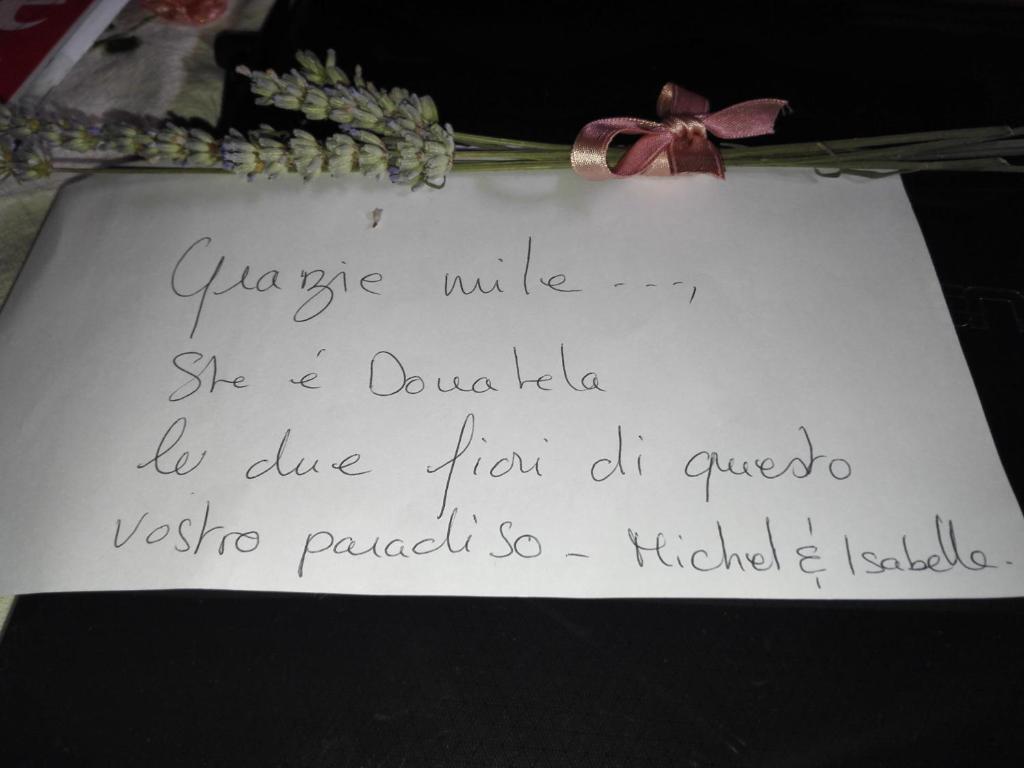 Grazie mile ---,
Ste é Donatela
le due fiori di questo
vostro paradiso - Michel & Isabelle.